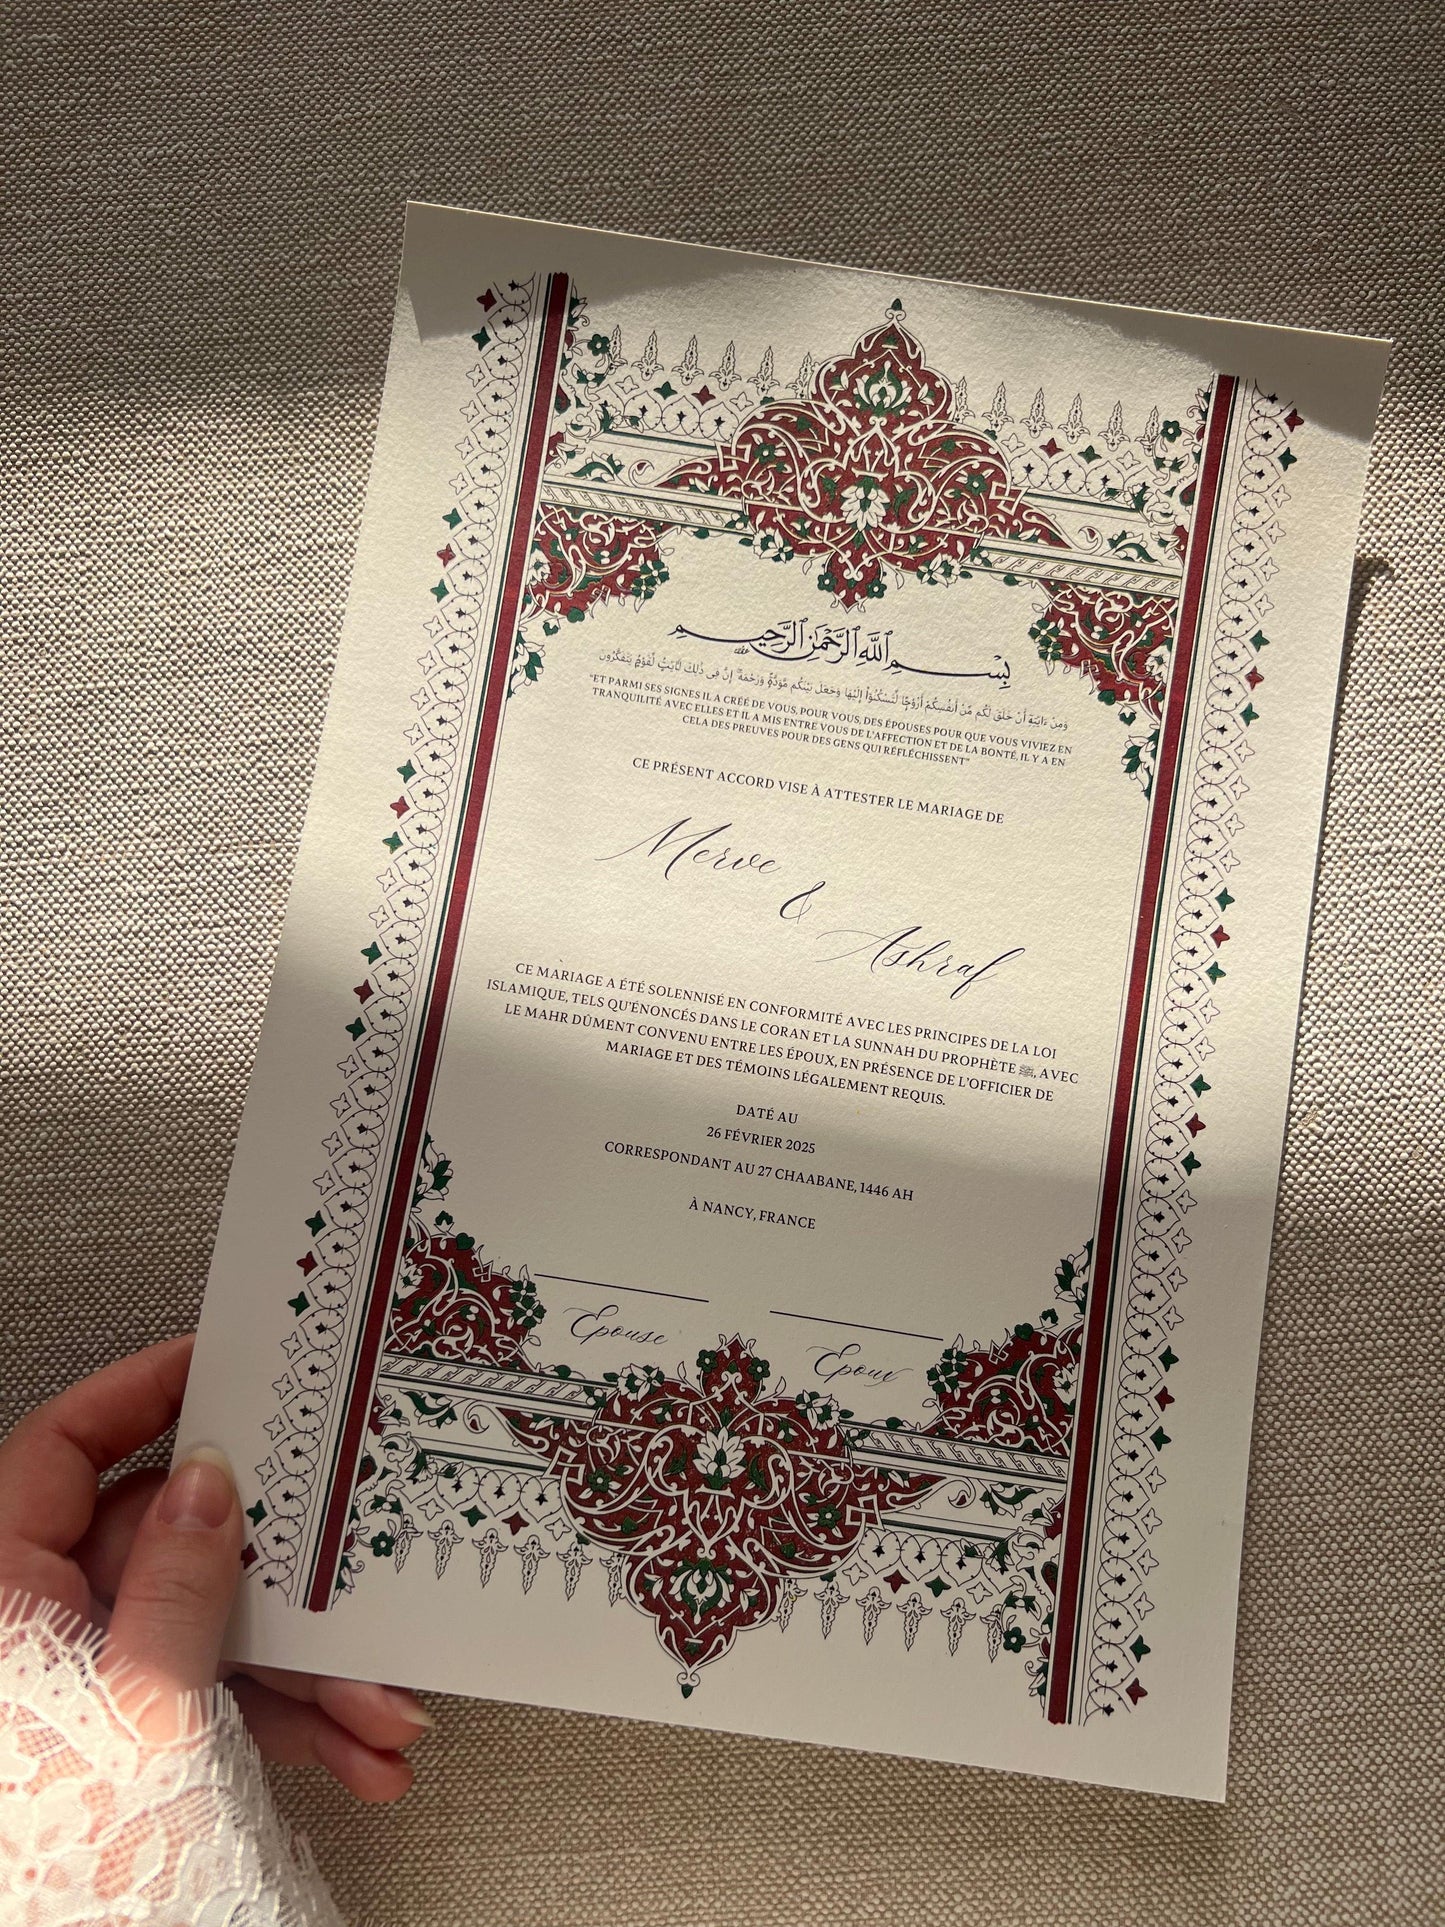 بِسْمِ ٱللَّهِ ٱلرَّحْمَٰنِ ٱلرَّحِيمِ
وَمِنْ ءَايَٰتِهِۦٓ أَنْ خَلَقَ لَكُم مِّنْ أَنفُسِكُمْ أَزْوَٰجًا لِّتَسْكُنُوٓا۟ إِلَيْهَا وَجَعَلَ بَيْنَكُم مَّوَدَّةً وَرَحْمَةً ۚ إِنَّ فِى ذَٰلِكَ لَـَٔايَٰتٍ لِّقَوْمٍ يَتَفَكَّرُونَ
"ET PARMI SES SIGNES IL A CRÉÉ DE VOUS, POUR VOUS, DES ÉPOUSES POUR QUE VOUS VIVIEZ EN
TRANQUILITÉ AVEC ELLES ET IL A MIS ENTRE VOUS DE L'AFFECTION ET DE LA BONTÉ, IL Y A EN
CELA DES PREUVES POUR DES GENS QUI RÉFLÉCHISSENT"
CE PRÉSENT ACCORD VISE À ATTESTER LE MARIAGE DE
Merve
&
Ashraf
CE MARIAGE A ÉTÉ SOLENNISÉ EN CONFORMITÉ AVEC LES PRINCIPES DE LA LOI
ISLAMIQUE, TELS QU'ÉNONCÉS DANS LE CORAN ET LA SUNNAH DU PROPHÈTE ﷺ, AVEC
LE MAHR DÛMENT CONVENU ENTRE LES ÉPOUX, EN PRÉSENCE DE L'OFFICIER DE
MARIAGE ET DES TÉMOINS LÉGALEMENT REQUIS.
DATÉ AU
26 FÉVRIER 2025
CORRESPONDANT AU 27 CHAABANE, 1446 AH
À NANCY, FRANCE
Épouse
Époux